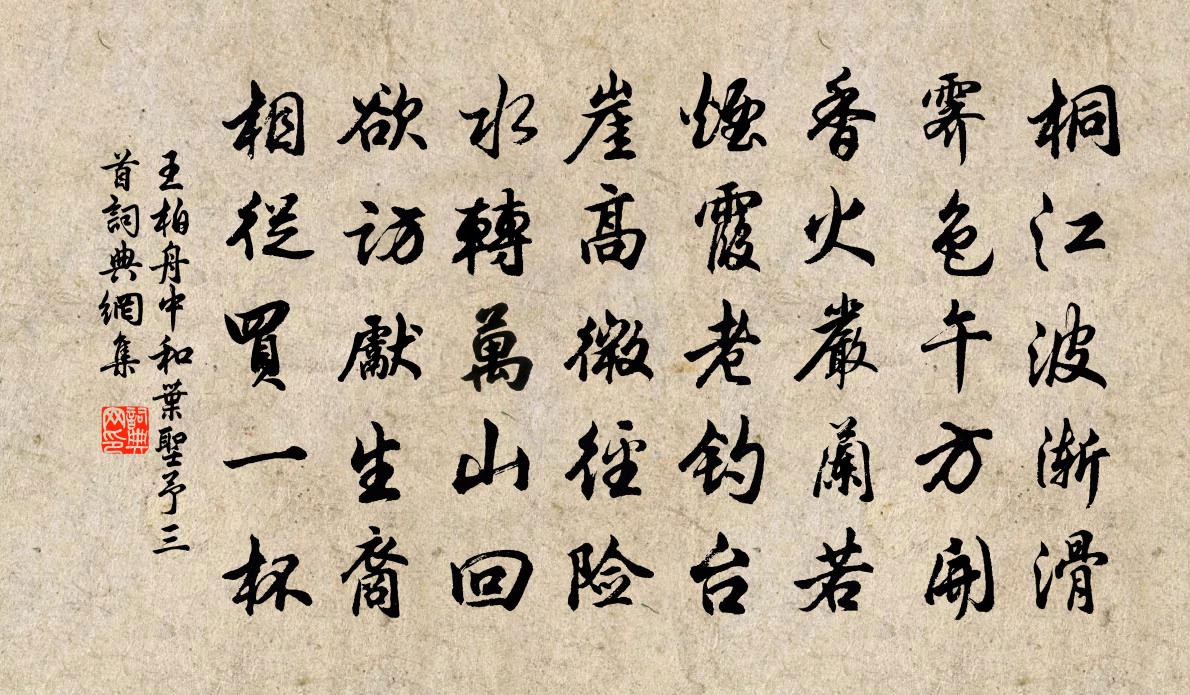 桐江波渐滑
霽色午方開
香火嚴蘭若
煙霞老钓台
崖高微徑险
水轉萬山回
欲访獻生裔
相從買一杯
王柏舟中和葉聖予三
首詞典網集
詞典网印